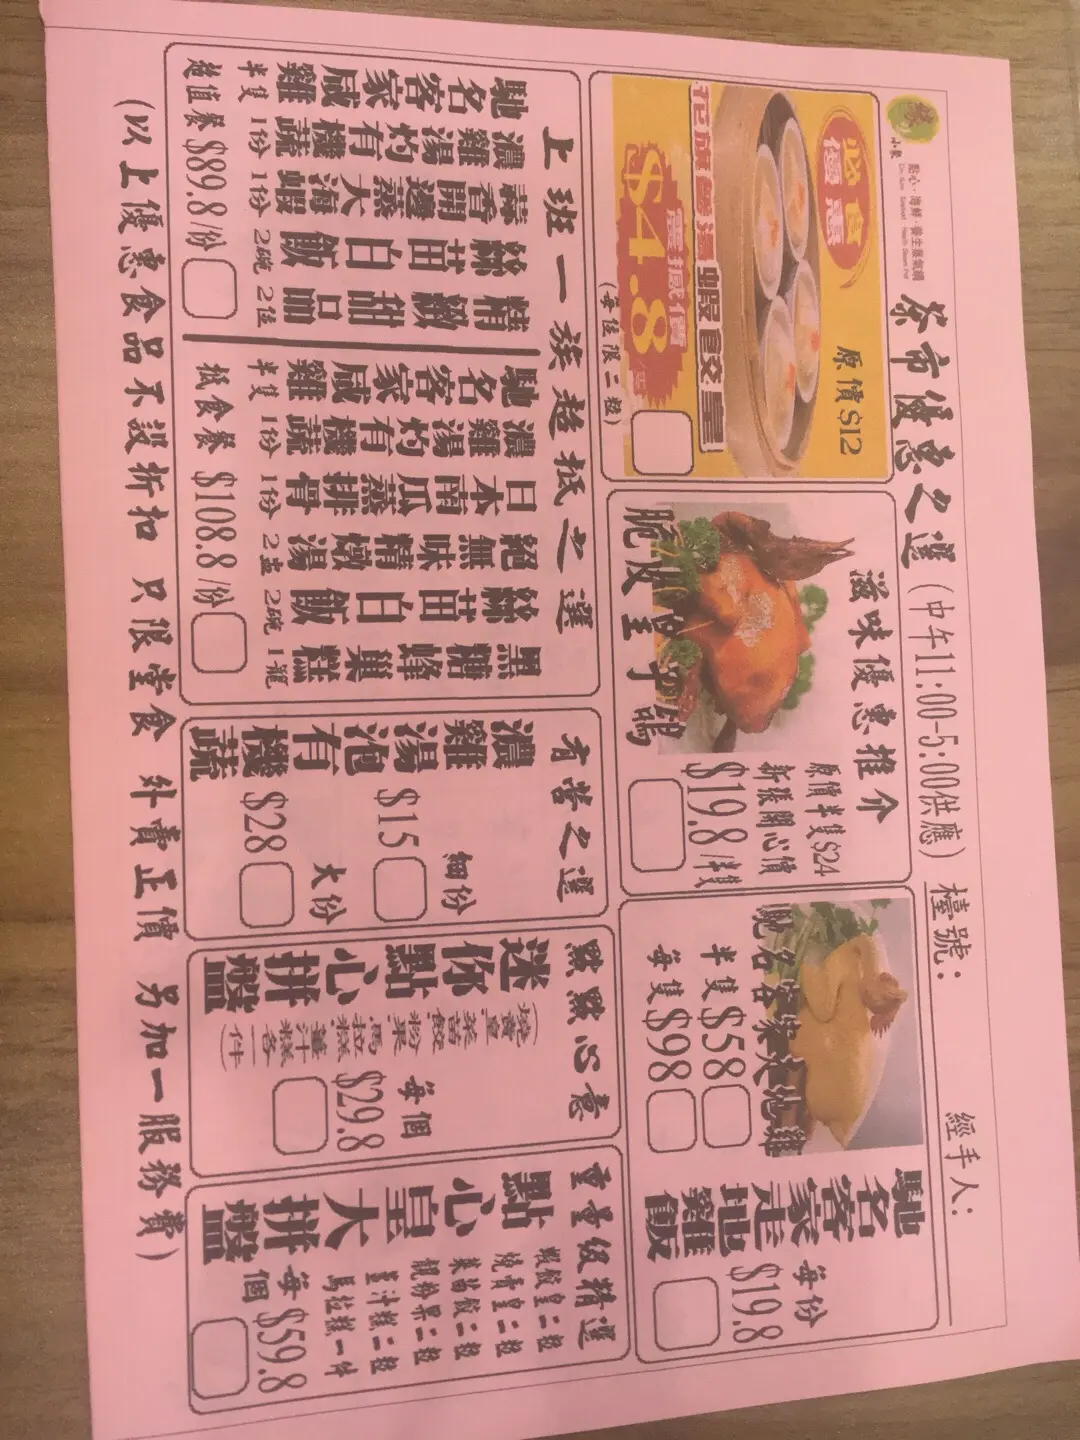 點心·海鮮·養生蒸氣鍋
茶市優惠之選(中午11:00-5:00供應) 檯號: 經手人:
必食
優惠
原價$12
花旗參湯蝦餃皇
震撼價
$4.8
(每位限二粒)
滋味優惠推介
脆皮皇子鴿
原價半隻$24
新張開心價
$19.8/半隻
馳名客家走地雞
半隻$58
每隻$98
馳名客家走地雞飯
每份
$19.8
上班一族超抵之選
馳名客家咸雞 半隻
濃雞湯灼有機蔬 1份
蒜香開邊蒸大海蝦 1份
絲苗白飯 2碗
精緻甜品 2位
超值餐 $89.8/份
馳名客家咸雞 半隻
濃雞湯灼有機蔬 1份
日本南瓜蒸排骨 1份
絕無味精燉湯 2盅
絲苗白飯 2碗
黑糖蜂巢糕 1籠
抵食餐 $108.8/份
有營之選
濃雞湯泡有機蔬
細份
$15
大份
$28
點點心意
迷你點心拼盤
(燒賣皇
菜苗餃
粉果
馬拉糕
薑汁糕
各一件)
每個
$29.8
重量級精選
點心皇大拼盤
蝦餃皇二粒
燒賣皇二粒
菜苗餃二粒
靚粉果二粒
薑汁糕二粒
馬拉糕一件
每個 $59.8
(以上優惠食品不設折扣 只限堂食 外賣正價 另加一服務費)